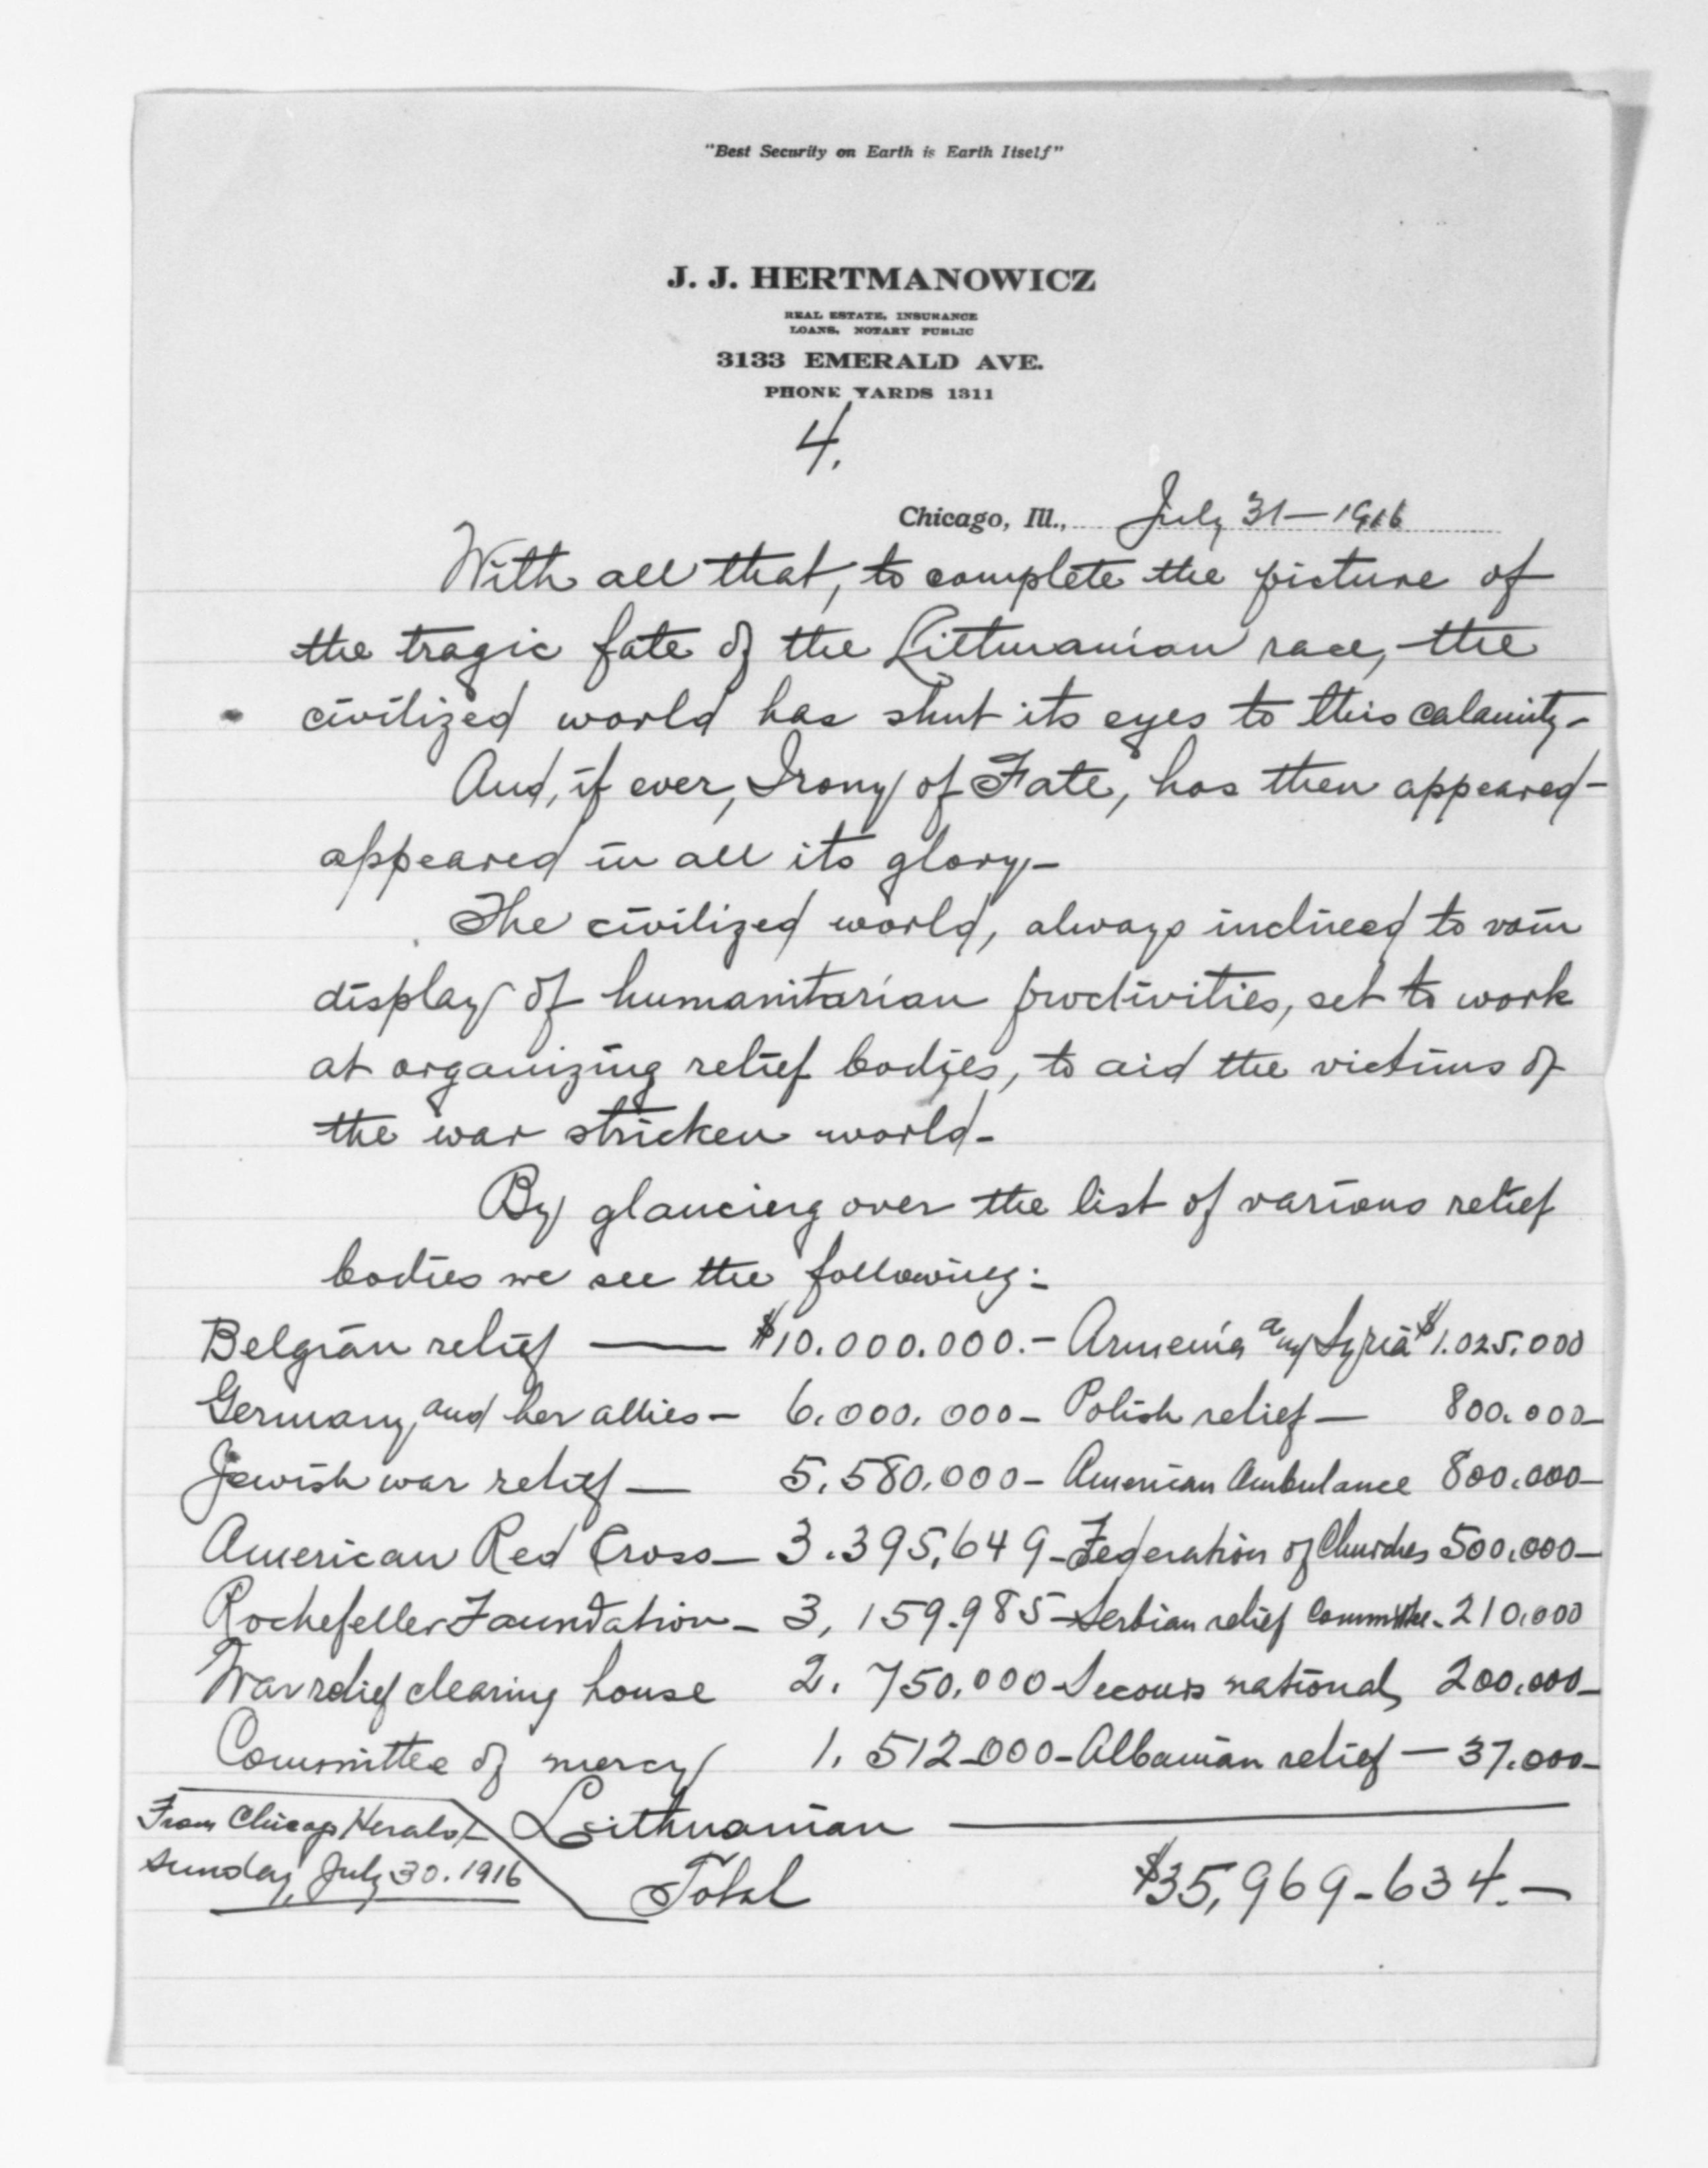 "Best Security on Earth is Earth Itself"
J. J. HERTMANOWICZ
REAL ESTATE, INSURANCE
LOANS, NOTARY PUBLIC
3133 EMERALD AVE.
PHONE YARDS 1311
4.
Chicago, Ill., July 31—1916
With all that, to complete the picture of
the tragic fate of the Lithuanian race, the
civilized world has shut its eyes to this calamity-
And, if ever, Irony of Fate, has then appeared-
appeared in all its glory-
The civilized world, always inclined to vain
display of humanitarian proclivities, set to work
at organizing relief bodies, to aid the victims of
the war stricken world-
By glancing over the list of various relief
bodies we see the following:
Belgian relief — $10.000.000.- Armenia and Syria $1.025.000
Germany and her allies - 6.000.000- Polish relief — 800.000-
Jewish war relief — 5.580.000- American Ambulance 800.000-
American Red Cross- 3.395,649- Federation of Churches 500.000-
Rockefeller Foundation- 3,159.985- Serbian relief Committee- 210.000
War relief clearing house 2.750,000- Secours national, 200.000-
Committee of mercy 1.512-000- Albanian relief — 37.000-
Lithuanian —
From Chicago Herald
Sunday, July 30. 1916
Total $35,969-634.-